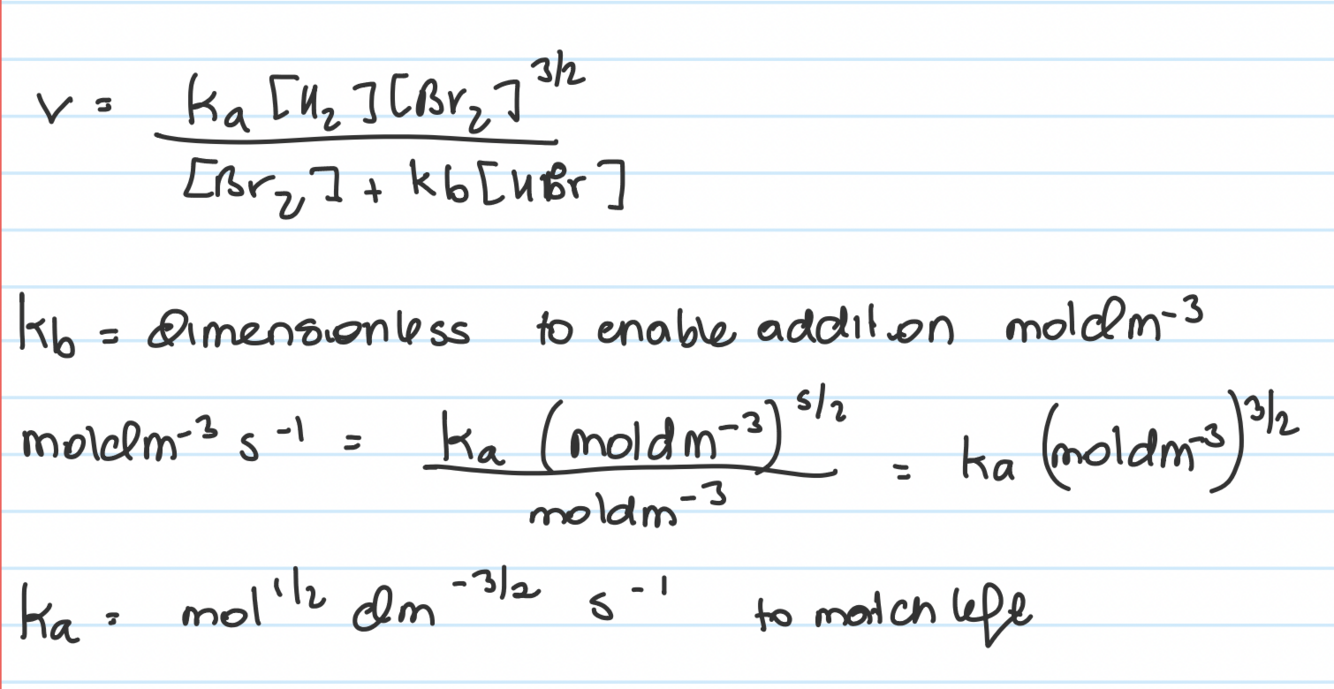 v = ka [H2][Br2]^3/2 / [Br2] + kb[HBr]
kb = Dimensionless to enable addition moldm^-3
moldm^-3 s^-1 = ka (moldm^-3)^5/2 / moldm^-3 = ka (moldm^-3)^3/2
ka = mol^1/2 dm^-3/2 s^-1 to match left